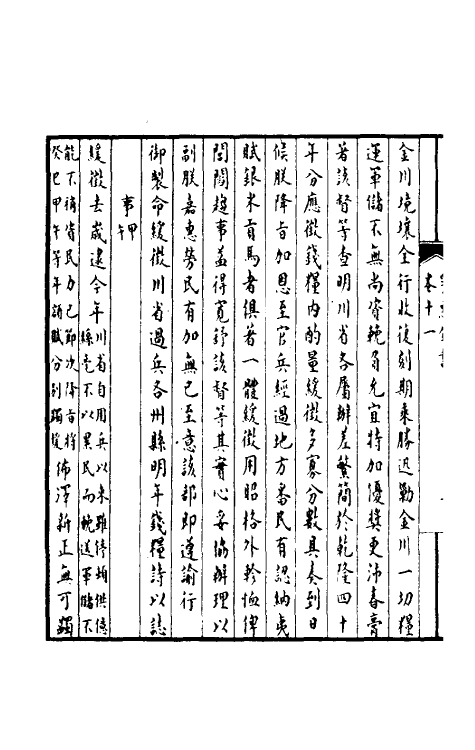 金川境壤全行收復刻期乘勝迅勦金川一切糧
運軍儲不無尚資輓勞允宜特加優獎更沛春膏
著該督等查明川省各屬辦差繁簡於乾隆四十
年分應徵錢糧內酌量緩徵多寡分數具奏到日
候朕降旨加恩至官兵經過地方番民有認納夷
賦銀米貢馬者俱著一體緩徵用昭格外軫恤俾
閭閻趨事益得寬紓該督等其實心妥協辦理以
副朕嘉惠勞民有加無已至意該部即遵諭行
御製命緩徵川省過兵各州縣明年錢糧詩以誌
事 甲午
緩徵去歲逮今年川省自用兵以來雖停頓供億縣官不以累民而輓送軍儲不
能不稍資民力已節次降旨將癸巳甲午等年諸賦分別蠲緩佈澤新正無可蠲
卷十一